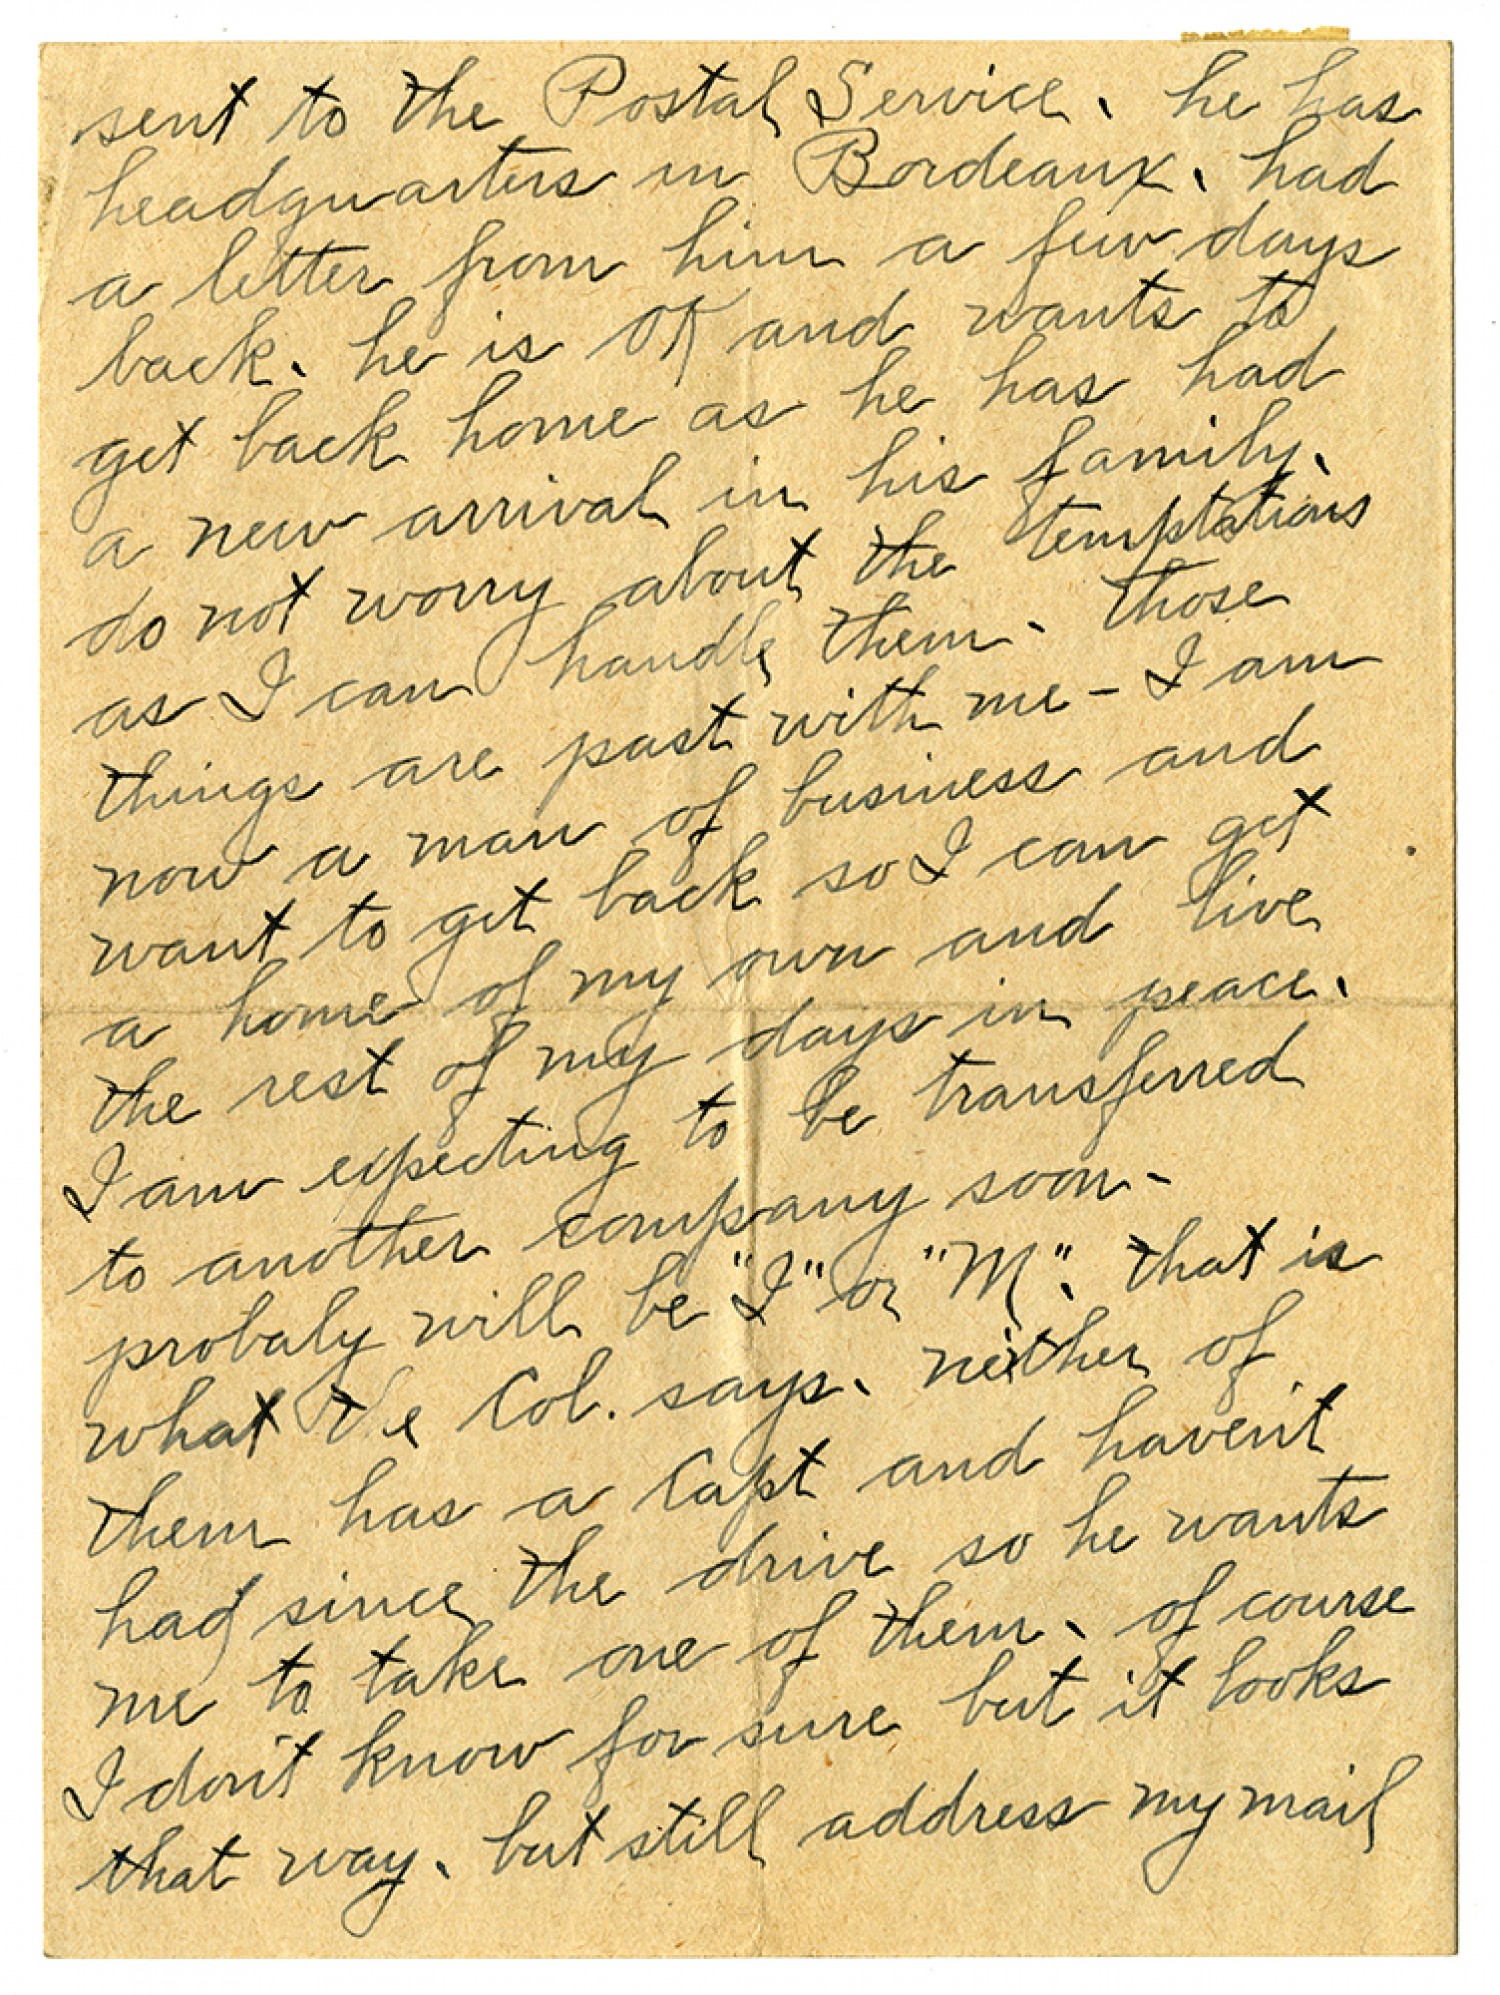 sent to the Postal Service. he has
headquarters in Bordeaux. had
a letter from him a few days
back. he is OK and wants to
get back home as he has had
a new arrival in his family.
do not worry about the temptations
as I can handle them. those
things are past with me - I am
now a man of business and
want to get back so I can get
a home of my own and live
the rest of my days in peace.
I am expecting to be transferred
to another company soon -
probaly will be "I" or "M". that is
what the Col. says. neither of
them has a Capt and haven't
had since the drive so he wants
me to take one of them. of course
I don't know for sure but it looks
that way. but still address my mail